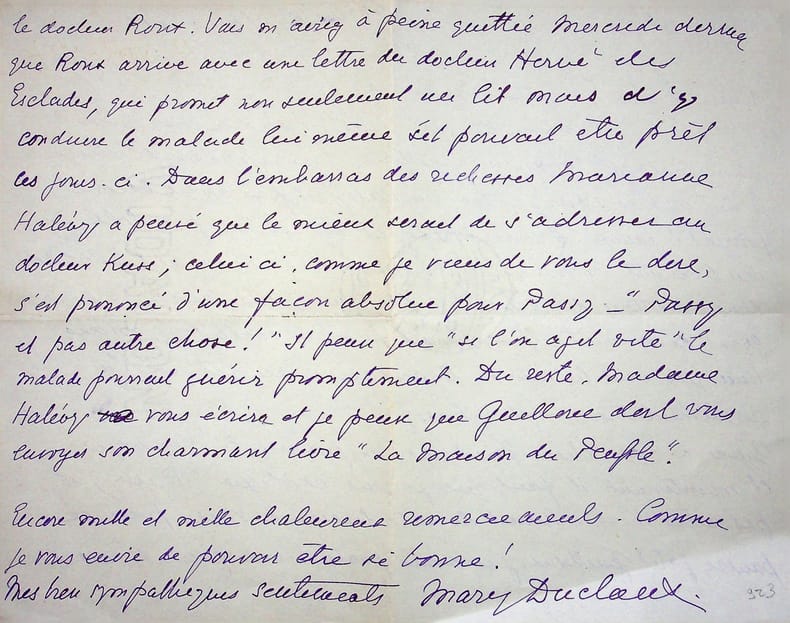 le docteur Roux. Vous m'aviez à peine quittée Mercredi dernier
que Roux arrive avec une lettre du docteur Hervé des
Esclades, qui promet non seulement un lit mais d'y
conduire le malade lui même s'il pouvait être prêt
ces jours-ci. Dans l'embarras des richesses Marianne
Halévy a pensé que le mieux serait de s'adresser au
docteur Kuss; celui ci, comme je viens de vous le dire,
s'est prononcé d'une façon absolue pour Passy — "Passy
et pas autre chose!" Il pense que "si l'on agit vite" le
malade pourrait guérir promptement. Du reste, Madame
Halévy vous écrira et je pense que Guilloux doit vous
envoyer son charmant livre "La Maison du Peuple".
Encore mille et mille chaleureux remerciements. Comme
je vous envie de pouvoir être si bonne!
Mes bien sympathiques sentiments Mary Duclaux.